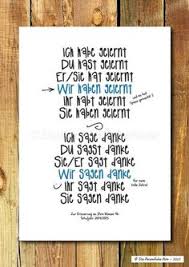 Ich habe gelernt
Du hast gelernt
Er/Sie hat gelernt
Wir haben gelernt
Ihr habt gelernt
Sie haben gelernt
Ich sage danke
Du sagst danke
Sie/Er sagt danke
Wir sagen danke
Ihr sagt danke
Sie sagen danke
Zur Erinnerung an Ihre Klasse 4b